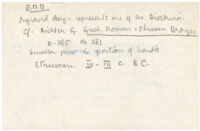 E.M.B.
Engraved design represents one of the Dioskouroi.
Cf. Richter G. Greek, Roman & Etruscan Bronzes
p. 285. no. 281.
Smaller piece is portion of handle.
Etruscan IV - III c. B.C.